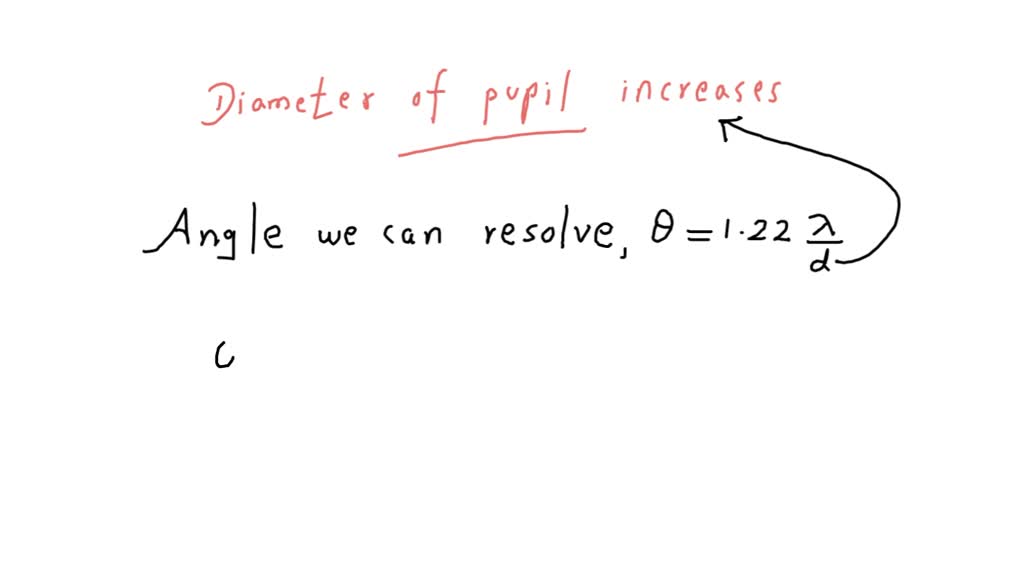 Diameter of pupil increases
Angle we can resolve, θ = 1.22 λ/d